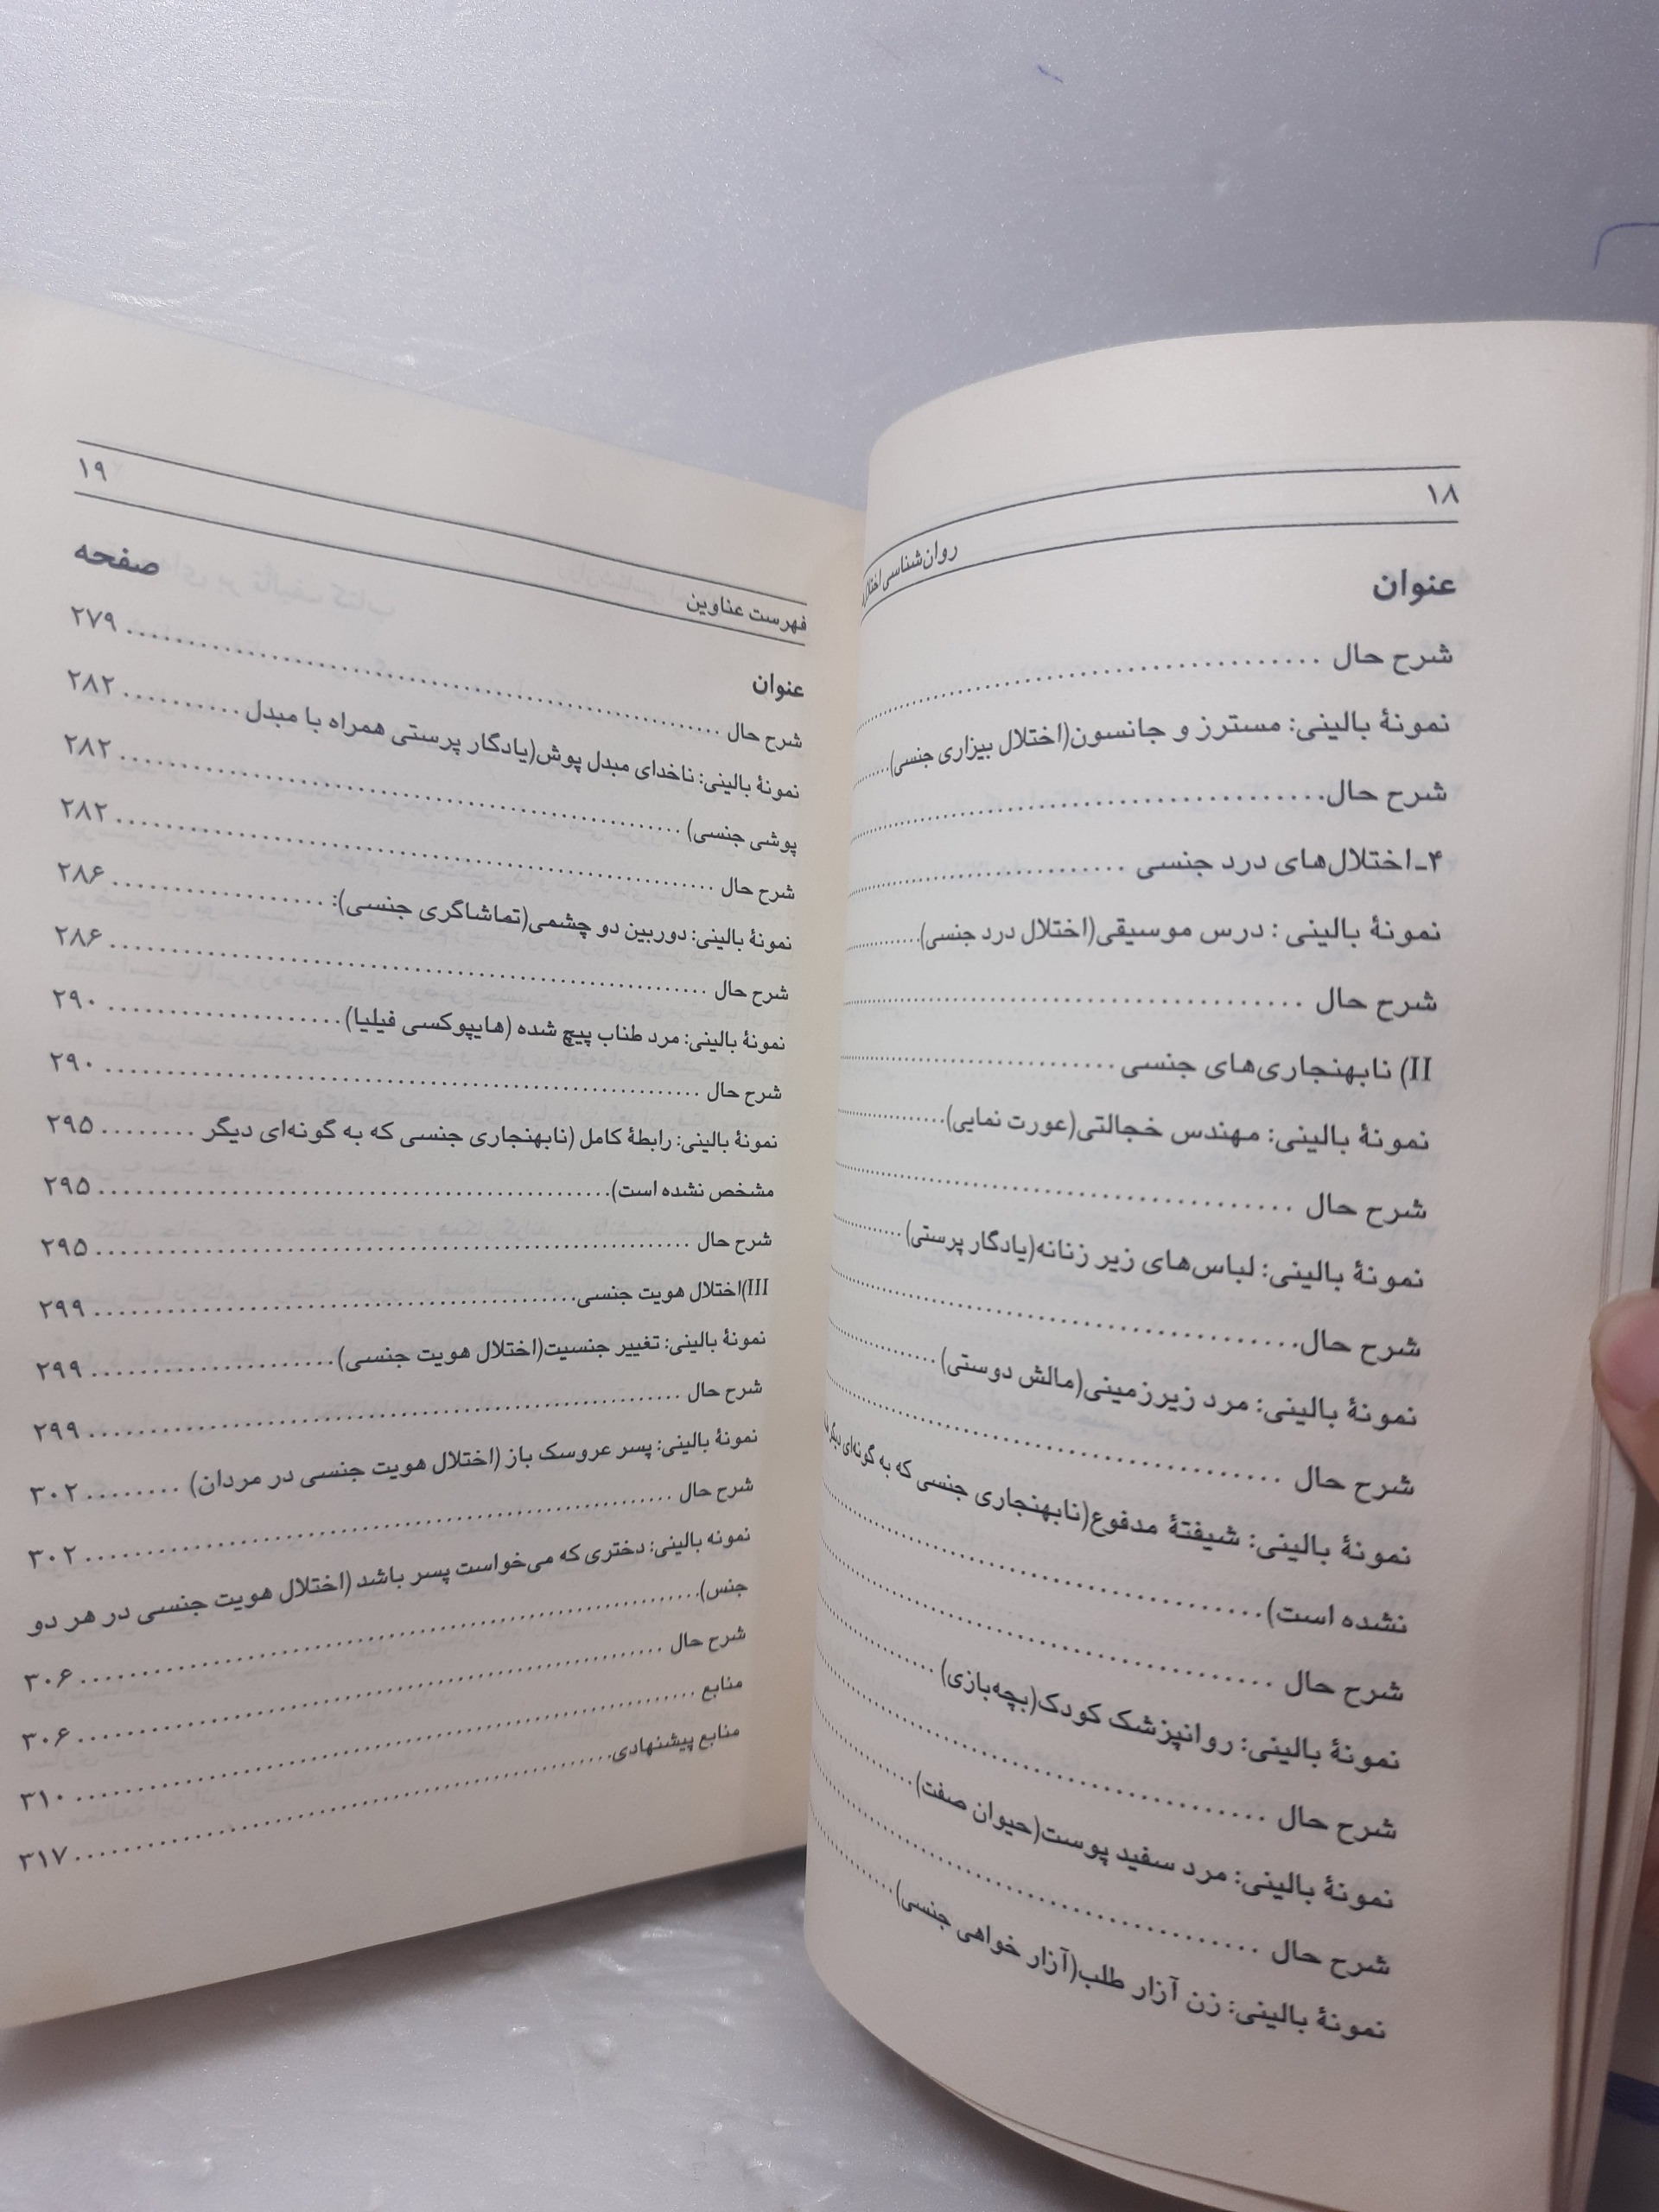 ۱۸
روان‌شناسی
عنوان
شرح حال
نمونهٔ بالینی: مسترز و جانسون(اختلال بیزاری جنسی)
شرح حال
۴ـ‌اختلال‌های درد جنسی
نمونهٔ بالینی : درس موسیقی(اختلال درد جنسی)
شرح حال
II) نابهنجاری‌های جنسی
نمونهٔ بالینی: مهندس خجالتی(عورت نمایی)
شرح حال
نمونهٔ بالینی: لباس‌های زیر زنانه(یادگار پرستی)
شرح حال
نمونهٔ بالینی: مرد زیرزمینی(مالش دوستی)
شرح حال
نمونهٔ بالینی: شیفتهٔ مدفوع(نابهنجاری جنسی که به گونه‌ای دیگر
نشده است)
شرح حال
نمونهٔ بالینی: روانپزشک کودک(بچه‌بازی)
شرح حال
نمونهٔ بالینی: مرد سفید پوست(حیوان صفت)
شرح حال
نمونهٔ بالینی: زن آزار طلب(آزار خواهی جنسی)
فهرست عناوین ۱۹
عنوان صفحه
شرح حال ۲۷۹
نمونهٔ بالینی: ناخدای مبدل پوش(یادگار پرستی همراه با مبدل ۲۸۲
پوشی جنسی) ۲۸۲
شرح حال ۲۸۲
نمونهٔ بالینی: دوربین دو چشمی(تماشاگری جنسی): ۲۸۶
شرح حال ۲۸۶
نمونهٔ بالینی: مرد طناب پیچ شده (هایپوکسی فیلیا) ۲۹۰
شرح حال ۲۹۰
نمونهٔ بالینی: رابطهٔ کامل (نابهنجاری جنسی که به گونه‌ای دیگر ۲۹۵
مشخص نشده است) ۲۹۵
شرح حال ۲۹۵
III)اختلال هویت جنسی ۲۹۹
نمونهٔ بالینی: تغییر جنسیت(اختلال هویت جنسی) ۲۹۹
شرح حال ۲۹۹
نمونهٔ بالینی: پسر عروسک باز (اختلال هویت جنسی در مردان) ۳۰۲
شرح حال ۳۰۲
نمونه بالینی: دختری که می‌خواست پسر باشد (اختلال هویت جنسی در هر دو
جنس) ۳۰۶
شرح حال ۳۰۶
منابع ۳۱۰
منابع پیشنهادی ۳۱۷